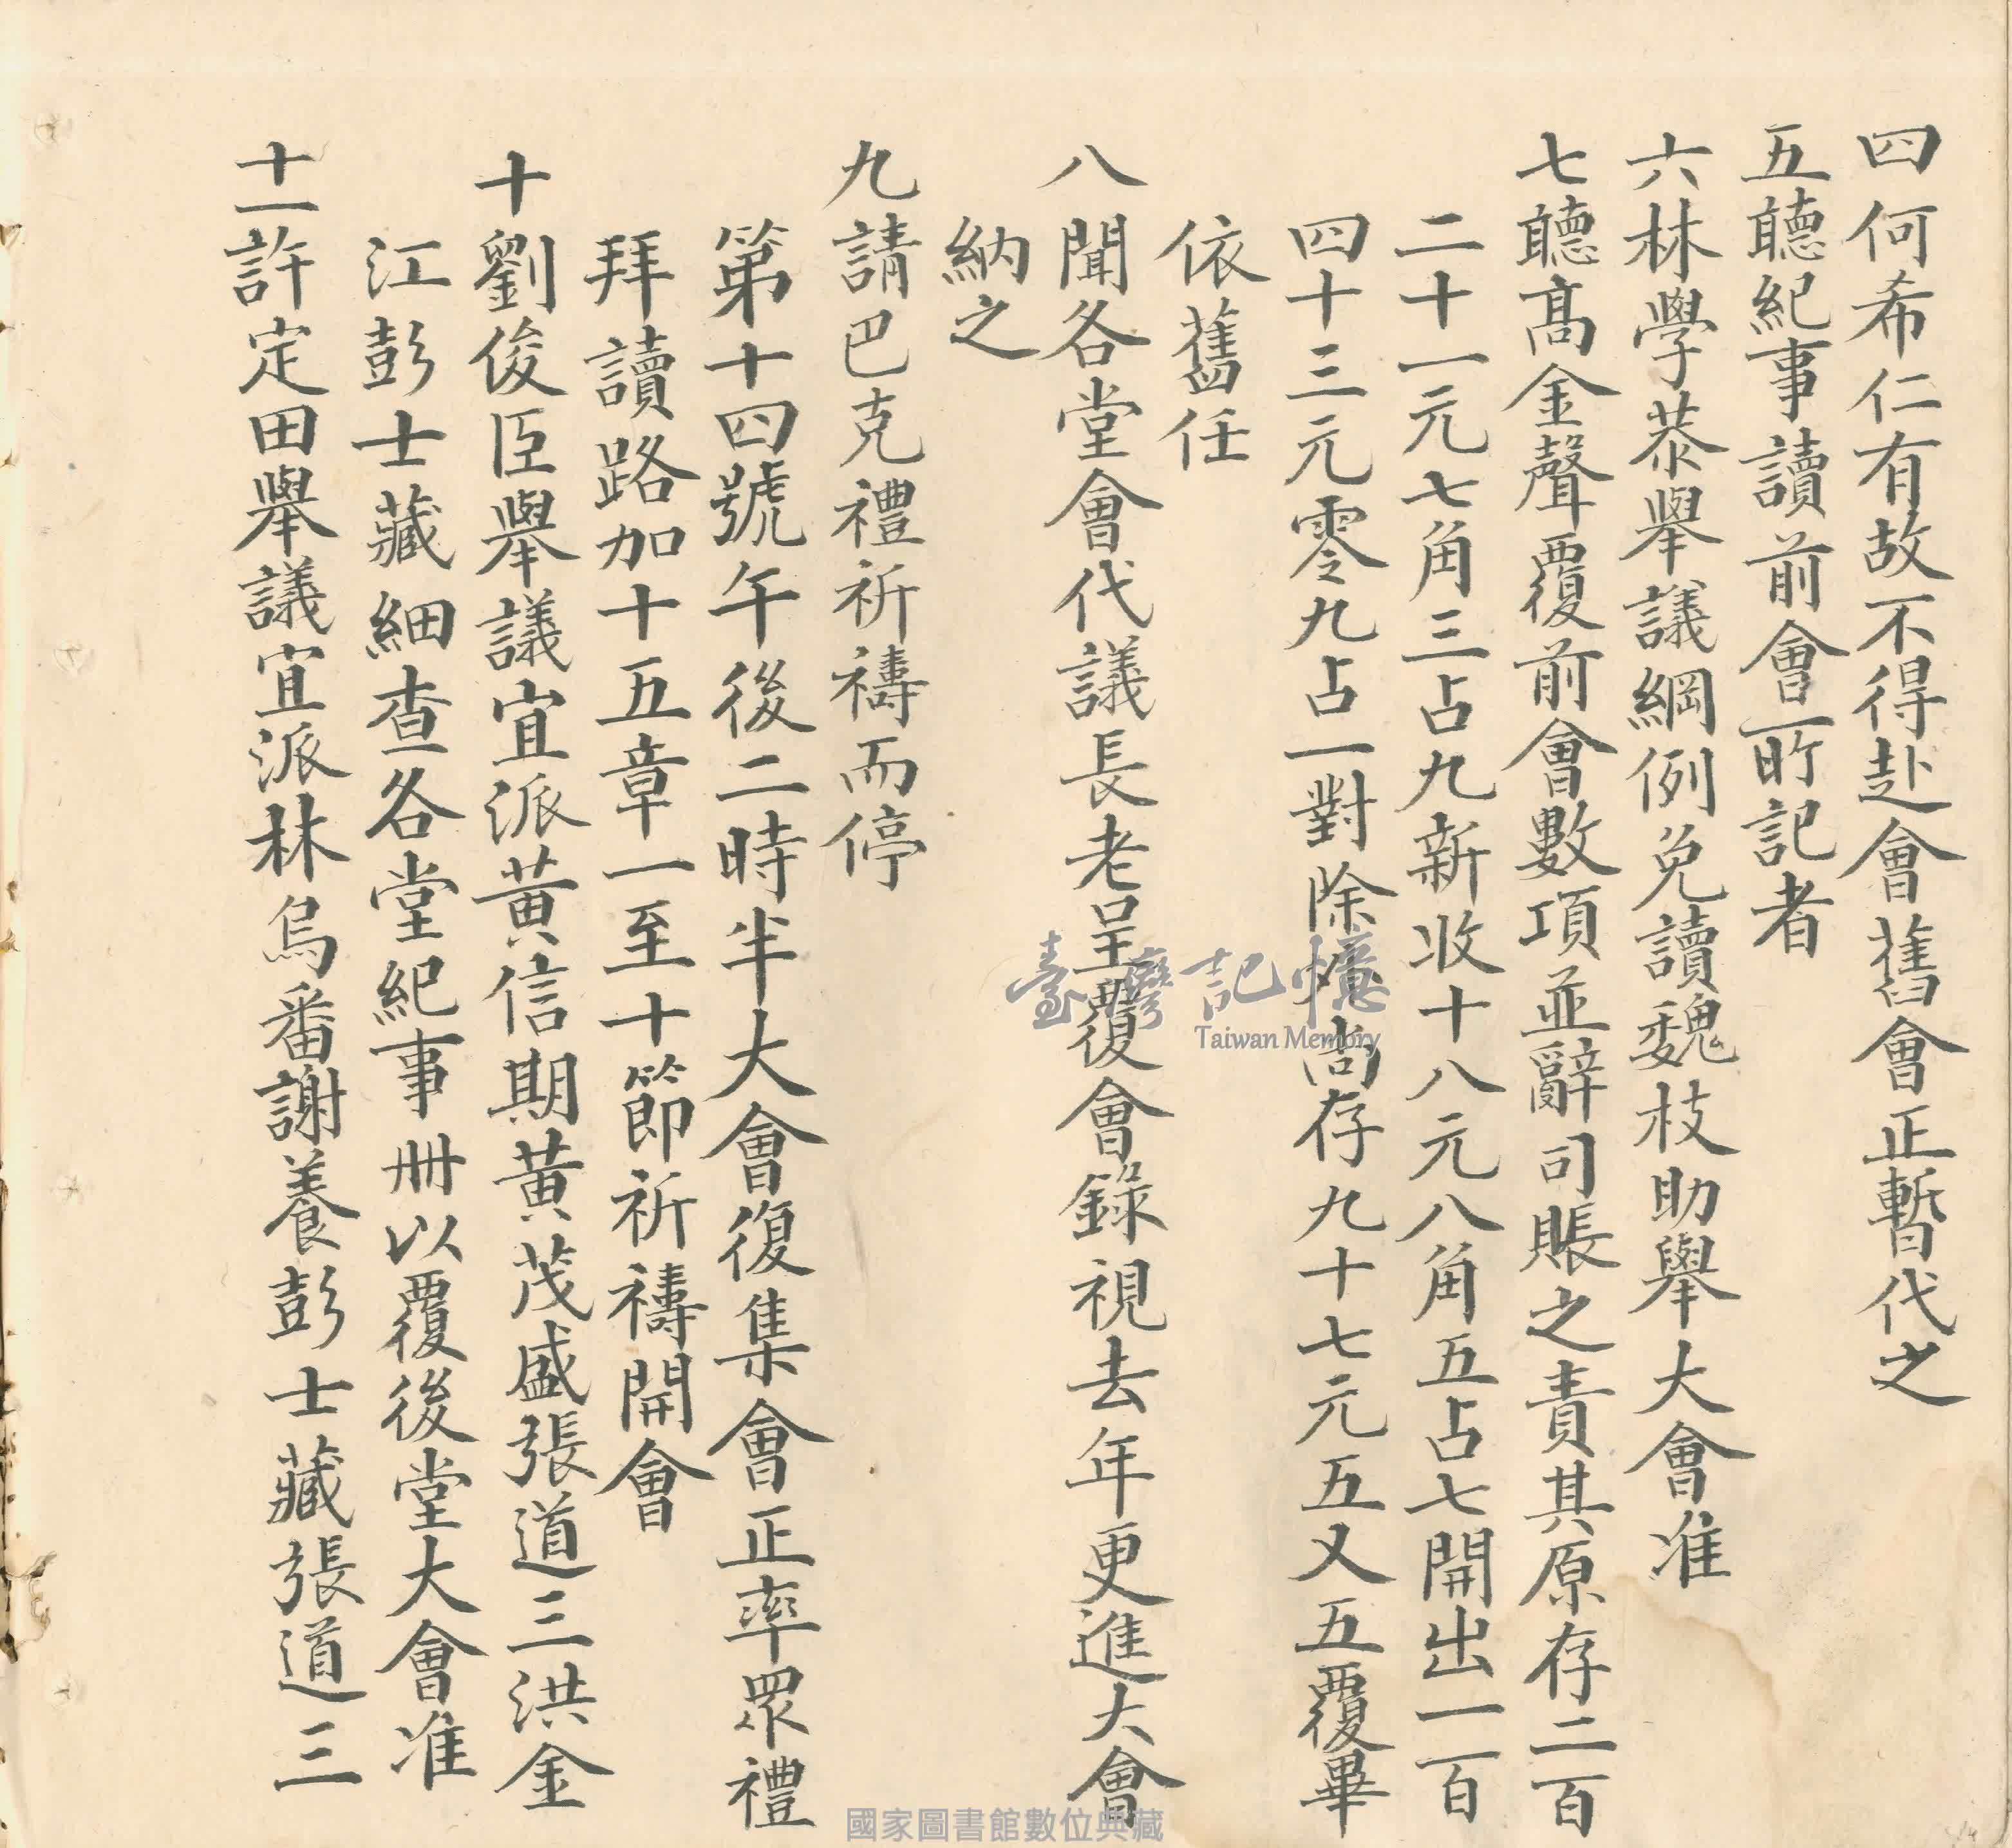 四何希仁有故不得赴會舊會正暫代之
五聽紀事讀前會所記者
六林學恭舉議綱例免讀魏枝助舉大會准
七聽高金聲覆前會數項並辭司賬之責其原存二百
二十一元七角三占九新收十八元八角五占七開出一百
四十三元零九占一對除 尚存九十七元五又五覆畢
依舊任
八聞各堂會代議長老呈覆會錄視去年更進大會
納之
九請巴克禮祈禱而停
第十四號午後二時半大會復集會正率眾禮
拜讀路加十五章一至十節祈禱開會
十劉俊臣舉議宜派黃信期黃茂盛張道三洪金
江彭士藏細查各堂紀事冊以覆後堂大會准
十一許定田舉議宜派林烏番謝養彭士藏張道三
臺灣記憶
Taiwan Memory
國家圖書館數位典藏